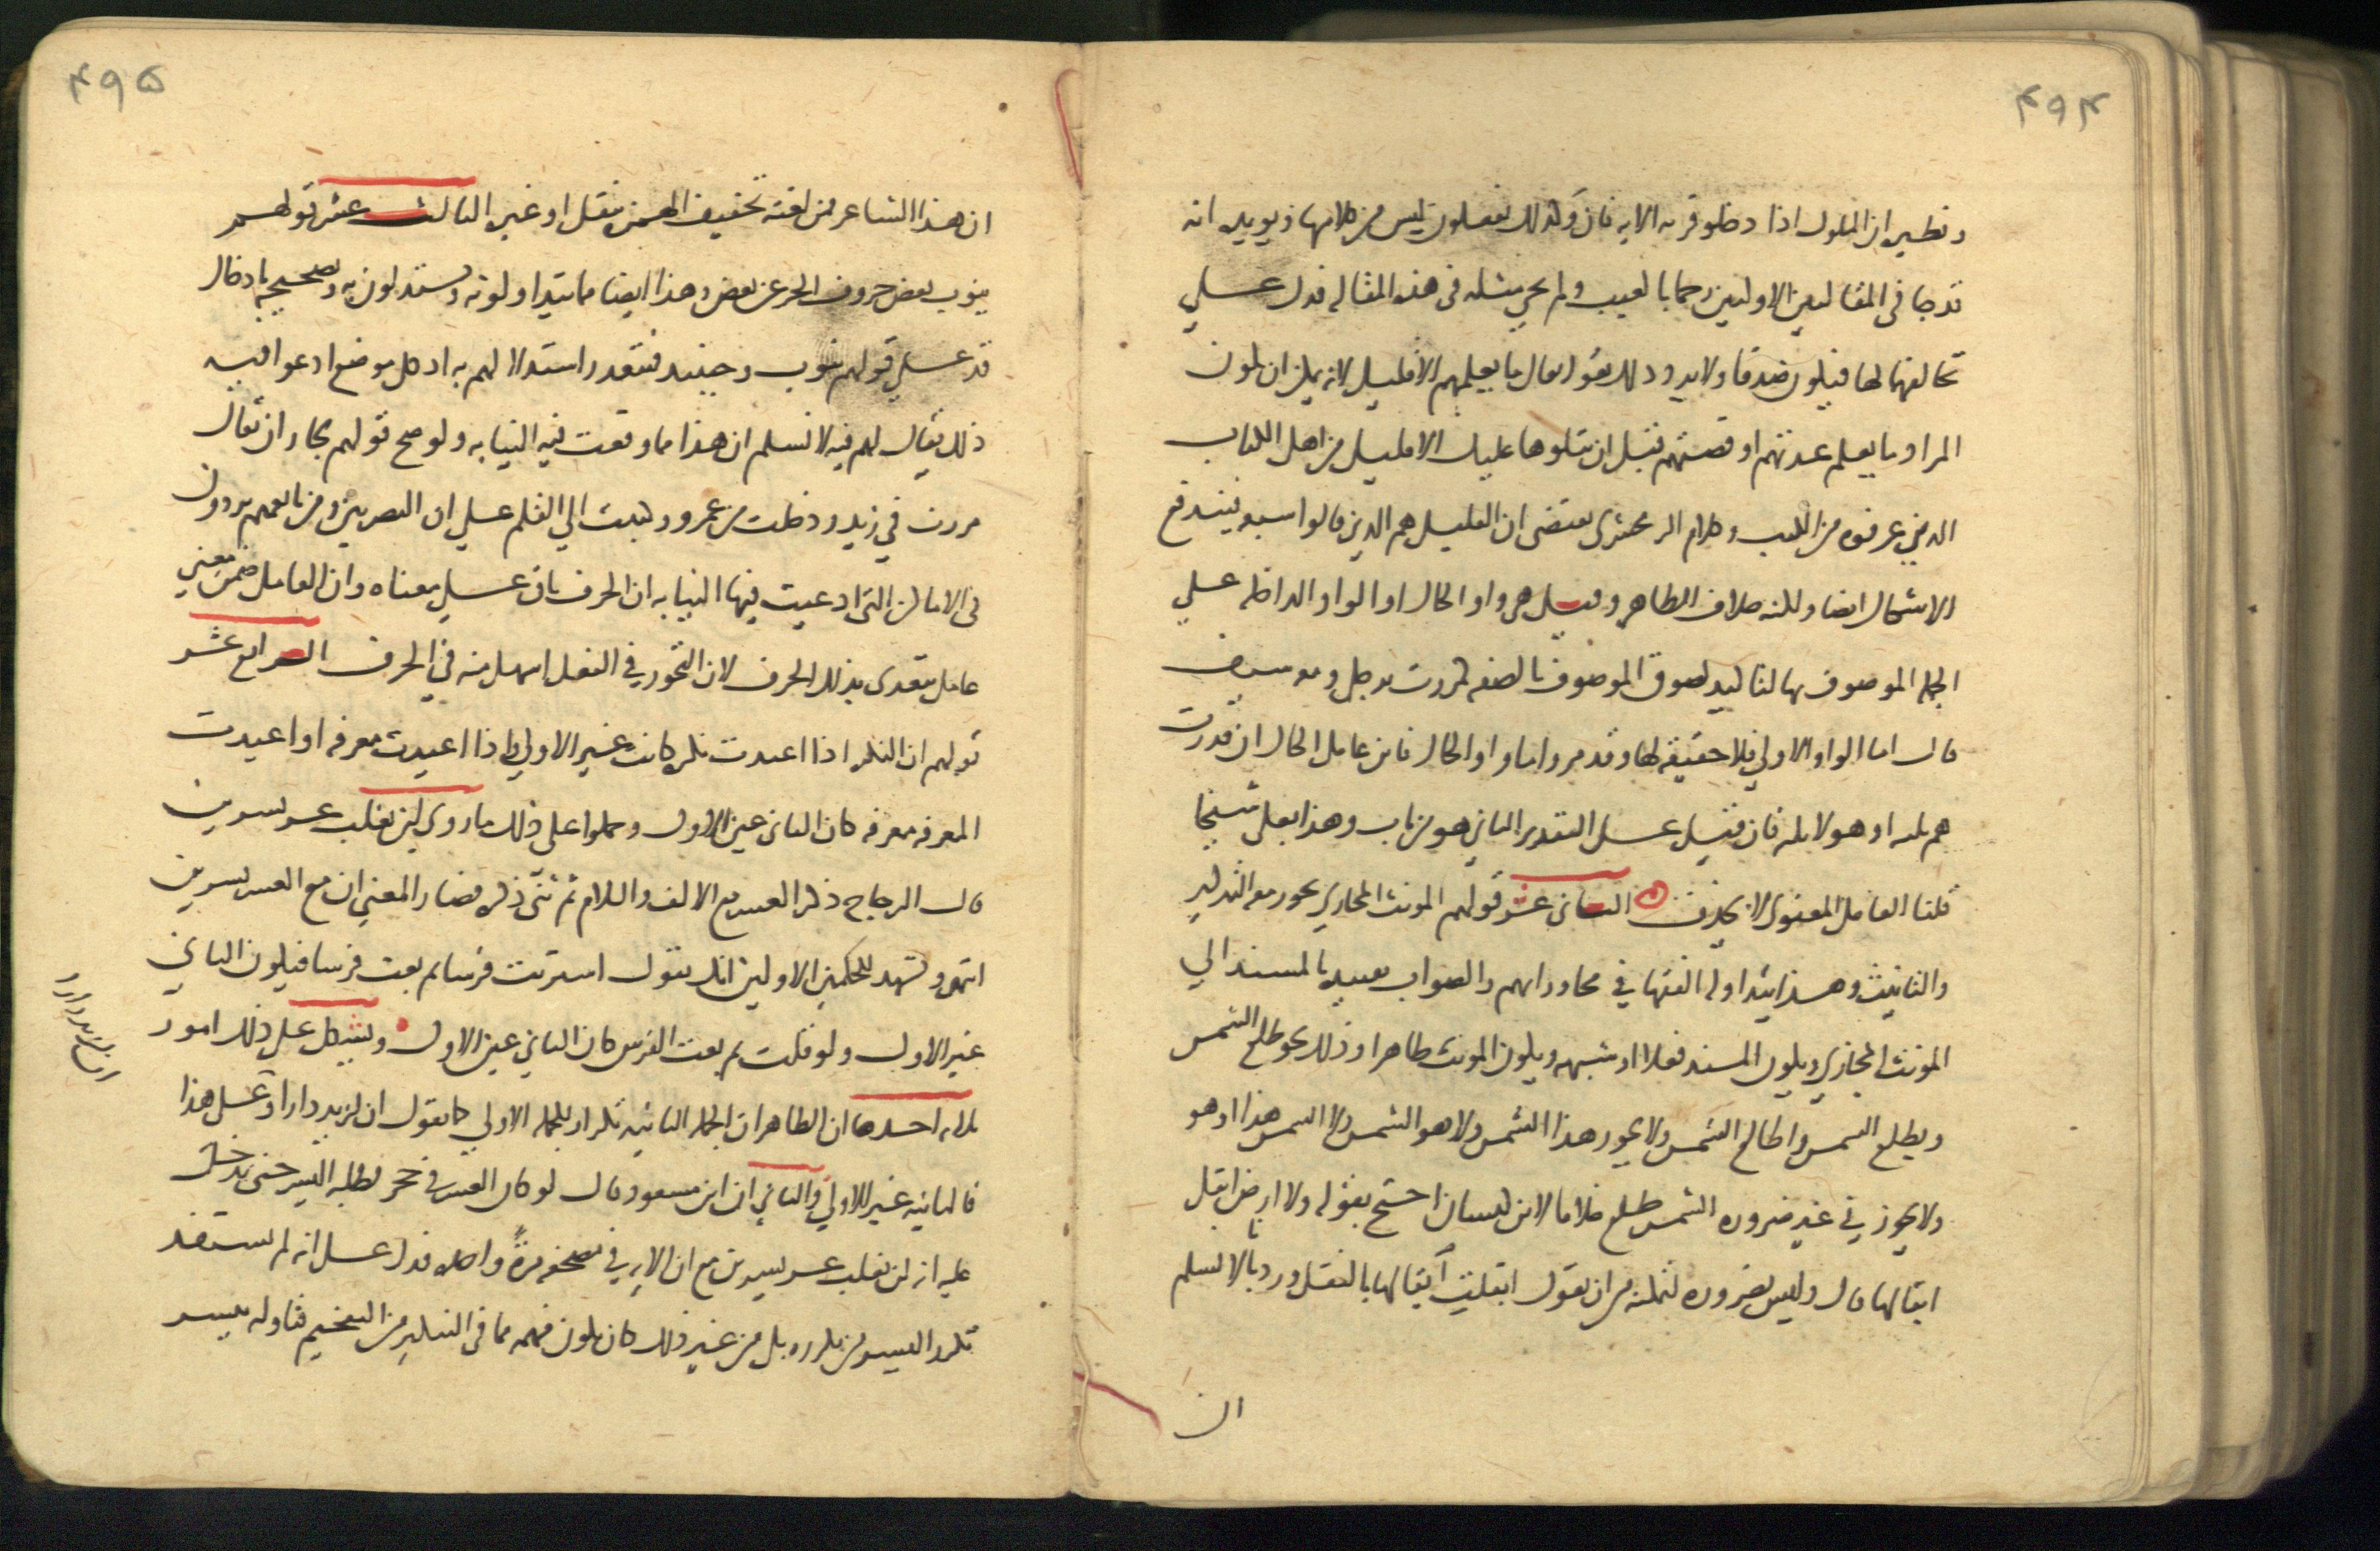 ۴۹۴
ونظيره ان الملوك اذا دخلوا قرية الاية فان وكذلك يفعلون ليس من كلامها ويؤيده انه
قد جا في المقالتين الاوليين رجما بالغيب ولم يجئ مثله في هذه المقالة فدل على
مخالفتها لها فيكون صدقا ولا يرد ذلك بقوله تعالى ما يعلمهم الا قليل لانه يمكن ان يكون
المراد ما يعلم عدتهم او قصتهم قبل ان نتلوها عليك الا قليل من اهل الكتاب
الذين عرفوه من الكتب وكلام الزمخشري يقتضي ان القليل هم الذين قالوا سبعة فيندفع
الاشكال ايضا ولكنه خلاف الظاهر وقيل هي واو الحال او الواو الداخلة على
الجملة الموصوف بها لتاكيد لصوق الموصوف بالصفة كمررت برجل ومعه سيف
قال اما الواو الاولى فلا حقيقة لها وقد مر واما واو الحال فاين عامل الحال ان قدرت
هم ثلثة او هولا ثلثة فان قيل على التقدير الثاني هو من باب وهذا بعلي شيخا
قلنا العامل المعنوي لا يحذف الثاني عشر قولهم المونث المجازي يجوز معه التذكير
والتانيث وهذا يتداوله الفقها في محاوراتهم والصواب تقييده بالمسند الى
المونث المجازي وبكون المسند فعلا او شبهه وبكون المونث ظاهرا وذلك نحو طلع الشمس
ويطلع الشمس واطالع الشمس ولا يجوز هذا الشمس ولا هو الشمس ولا الشمس هذا او هو
ولا يجوز في غير ضرورة الشمس طلع خلافا لابن كيسان احتج بقوله ولا ارض ابقل
ابقالها قال وليس بضرورة لتمكنه من ان يقول ابقلت ابقالها بالنقل ورد بانا لا نسلم
ان
۴۹۵
ان هذا الشاعر من لغته تخفيف الهمزة بنقل او غيره الثالث عشر قولهم
ينوب بعض حروف الجر عن بعض وهذا ايضا مما يتداولونه ويستدلون به وتصحيحه بادخال
قد على قولهم ينوب وحينئذ فيتعذر استدلالهم به اذ كل موضع ادعوا فيه
ذلك يقال لهم فيه لا نسلم ان هذا مما وقعت فيه النيابة ولو صح قولهم لجاز ان يقال
مررت في زيد ودخلت من عمرو وكتبت الى القلم على ان البصريين ومن تابعهم يرون
في الاماكن التي ادعيت فيها النيابة ان الحرف باق على معناه وان العامل ضمن معنى
عامل يتعدى بذلك الحرف لان التجوز في الفعل اسهل منه في الحرف الرابع عشر
قولهم ان النكرة اذا اعيدت نكرة كانت غير الاولى واذا اعيدت معرفة او اعيدت
المعرفة معرفة كان الثاني عين الاول وحملوا على ذلك ما روي لن يغلب عسر يسرين
قال الزجاج ذكر العسر مع الالف واللام ثم ثنى ذكره فصار المعنى ان مع العسر يسرين
انتهى ويشهد للحكمين الاولين انك تقول اشتريت فرسا ثم بعت فرسا فيكون الثاني
غير الاول ولو قلت ثم بعت الفرس كان الثاني عين الاول ويشكل على ذلك امور
ثلاثة احدها ان الظاهر ان الجملة الثانية تكرار للجملة الاولى كما تقول ان لزيد دارا وعلى هذا
فالثانية غير للاولى والثاني ان ابن مسعود قال لو كان العسر في جحر لطلبه اليسر حتى يدخل
عليه انه لن يغلب عسر يسرين مع ان الاية في مصحفه مرة واحدة فدل على انه لم يستفد
تكرر اليسر من تكرره بل من غير ذلك كان يكون فهمه مما في التنكير من التفخيم فتاوله بيسر
ان لزيد دارا